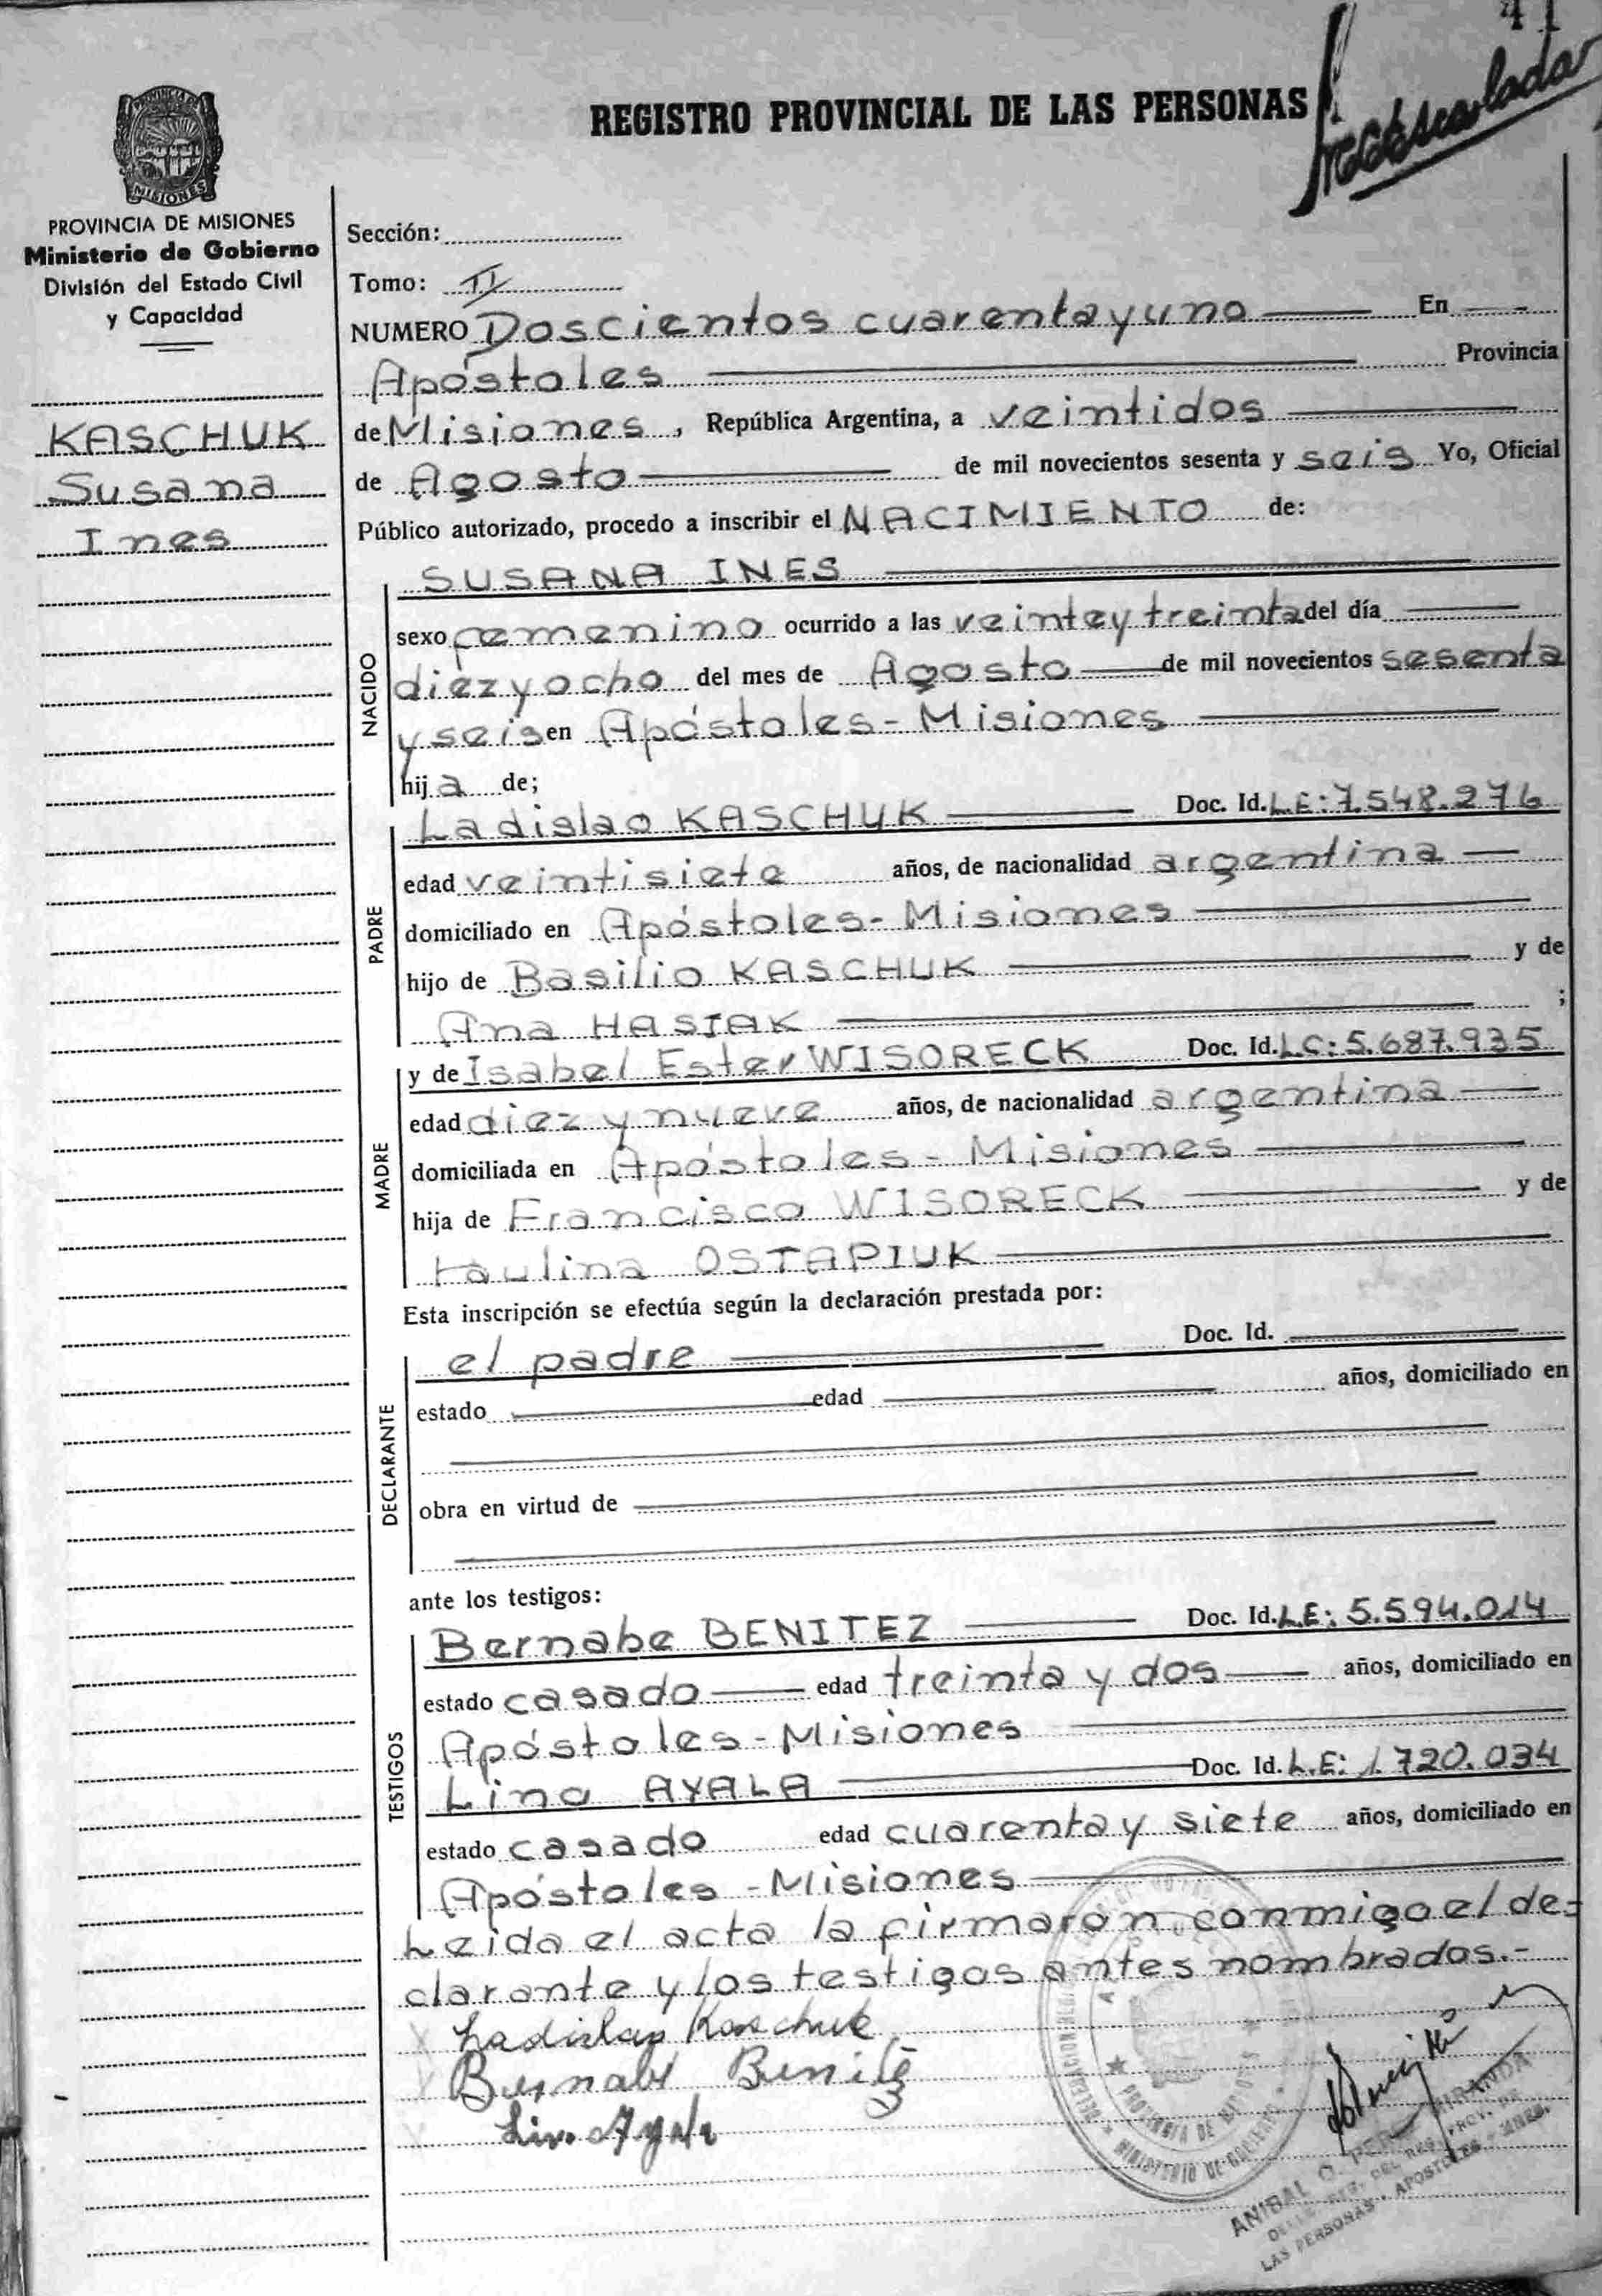 41
REGISTRO PROVINCIAL DE LAS PERSONAS
PROVINCIA DE MISIONES
Ministerio de Gobierno
División del Estado Civil
y Capacidad
KASCHUK
Susana
Ines
Sección:
Tomo: II
NUMERO Doscientos cuarenta y uno En
Apóstoles Provincia
de Misiones, República Argentina, a veintidos
de Agosto de mil novecientos sesenta y seis Yo, Oficial
Público autorizado, procedo a inscribir el NACIMIENTO de:
SUSANA INES
NACIDO
sexo femenino ocurrido a las veinte y treinta del día
diez y ocho del mes de Agosto de mil novecientos sesenta
y seis en Apóstoles - Misiones
hija de;
PADRE
Ladislao KASCHUK Doc. Id. L.E: 7.548.276
edad veintisiete años, de nacionalidad argentina
domiciliado en Apóstoles - Misiones
hijo de Basilio KASCHUK y de
Ana HASIAK ;
MADRE
y de Isabel Ester WISORECK Doc. Id. L.C: 5.687.935
edad diez y nueve años, de nacionalidad argentina
domiciliada en Apóstoles - Misiones
hija de Francisco WISORECK y de
Paulina OSTAPIUK
Esta inscripción se efectúa según la declaración prestada por:
DECLARANTE
el padre Doc. Id.
estado edad años, domiciliado en
obra en virtud de
ante los testigos:
TESTIGOS
Bernabe BENITEZ Doc. Id. L.E: 5.594.014
estado casado edad treinta y dos años, domiciliado en
Apóstoles - Misiones
Lino AYALA Doc. Id. L.E: 1.720.034
estado casado edad cuarenta y siete años, domiciliado en
Apóstoles - Misiones
Leida el acta la firmaron conmigo el de=
clarante y los testigos antes nombrados.-
Ladislao Kaschuk
Bernabe Benitez
Lino Ayala
PROVINCIA DE MISIONES
MINISTERIO DE GOBIERNO
ANIBAL O. MIRANDA
DEL REG. PROV. DE
LAS PERSONAS - APOSTOLES - MNES.